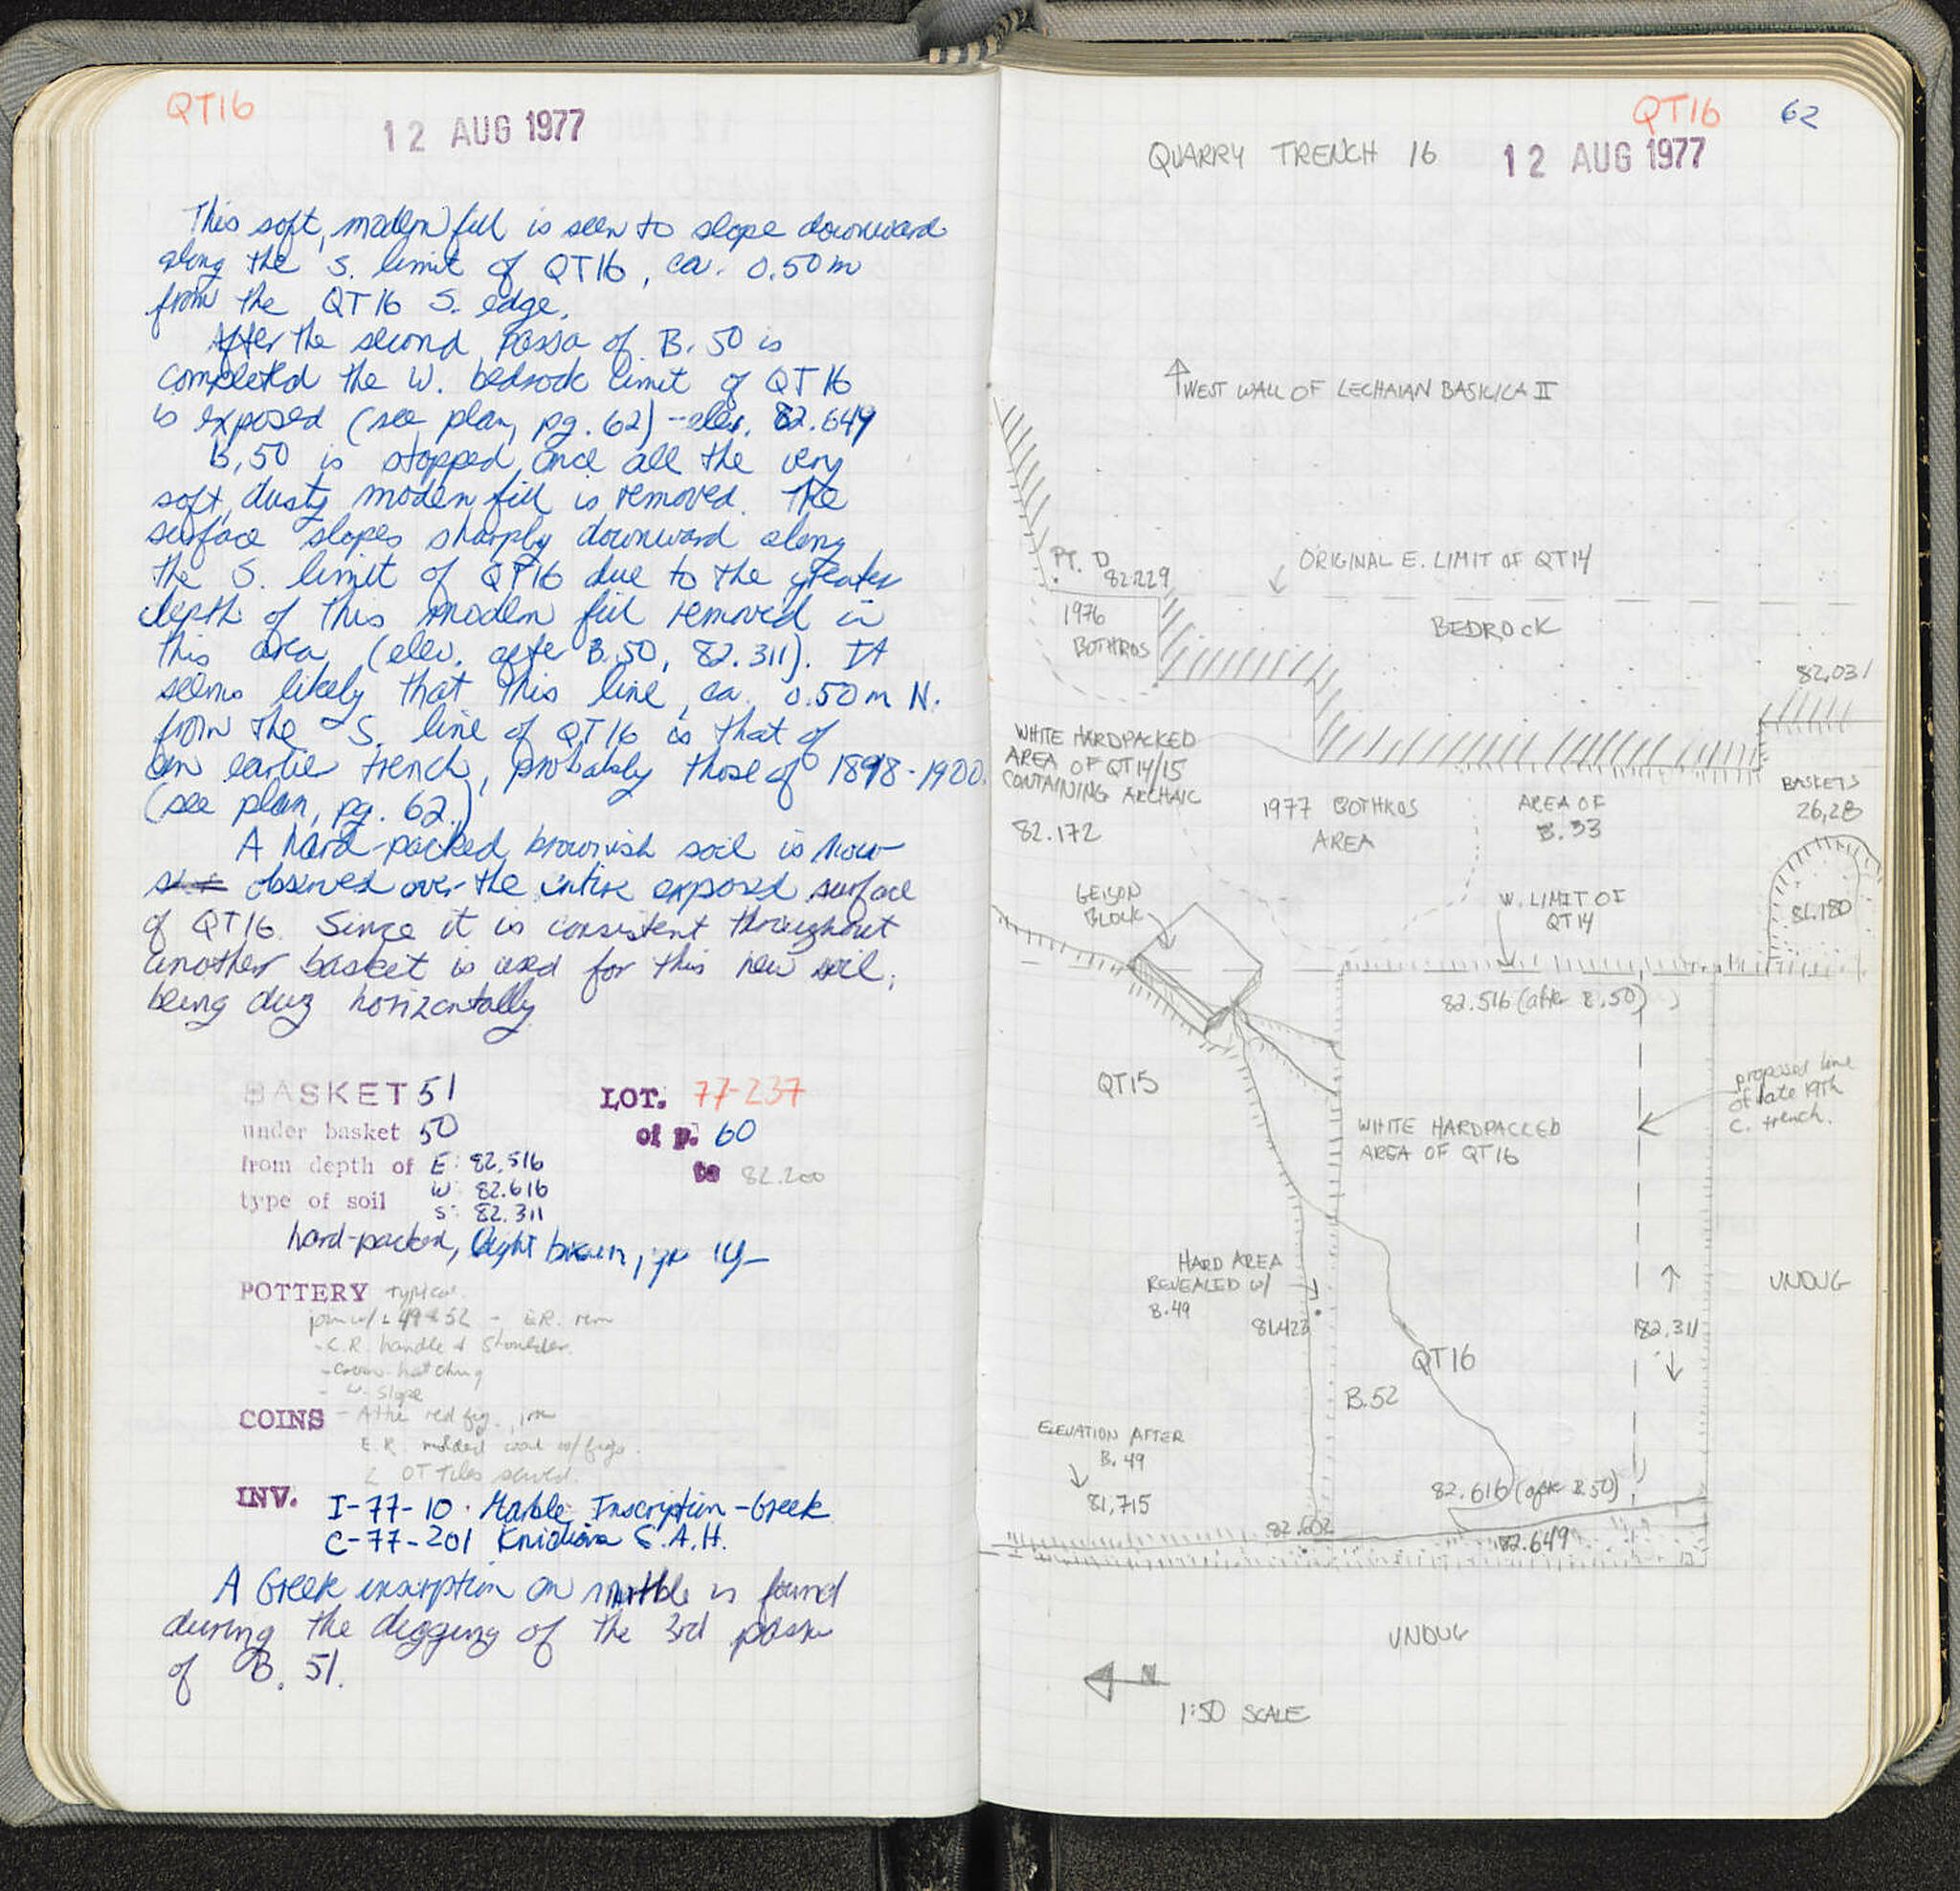 QT16
12 AUG 1977
This soft, modern fill is seen to slope downward
along the S. limit of QT16, ca. 0.50m
from the QT16 S. edge.
After the second passa of B. 50 is
completed the W. bedrock limit of QT16
is exposed (see plan, pg. 62) -- elev. 82.649
B. 50 is stopped once all the very
soft, dusty modern fill is removed. The
surface slopes sharply downward along
the S. limit of QT16 due to the greater
depth of this modern fill removed in
this area (elev. after B.50, 82.311). It
seems likely that this line, ca. 0.50m N.
from the S. line of QT16 is that of
an earlier trench, probably those of 1898-1900.
(see plan, pg. 62.)
A hard-packed brownish soil is now
observed over the entire exposed surface
of QT16. Since it is consistent throughout
another basket is used for this new soil,
being dug horizontally
BASKET 51
LOT. 77-237
under basket 50
of p. 60
from depth of E: 82.516
W: 82.616
S: 82.311
to 82.200
type of soil
hard-packed, light brown,
POTTERY typical
join w/ L 49 & 52 - E.R. rim
- C.R. handle & shoulder
- cross-hatching
- W. slope
COINS - Attic red fig.
E.R. molded w/ figs.
2 OT Tiles saved.
INV. I-77-10 · Marble Inscription - Greek
C-77-201 Knidian S.A.H.
A Greek inscription on marble is found
during the digging of the 3rd passa
of B. 51.
QT16 62
QUARRY TRENCH 16 12 AUG 1977
WEST WALL OF LECHAIAN BASILICA II
ORIGINAL E. LIMIT OF QT14
PT. D
82.229
1976
BOTHROS
BEDROCK
82.031
WHITE HARDPACKED
AREA OF QT14/15
CONTAINING ARCHAIC
82.172
1977 BOTHROS
AREA
AREA OF
B. 33
BASKETS
26,28
GEISON
BLOCK
W. LIMIT OF
QT14
81.180
82.516 (after B.50)
QT15
proposed line
of late 19th
C. trench.
WHITE HARDPACKED
AREA OF QT16
HARD AREA
REVEALED W/
B.49
81.423
UNDUG
82.311
QT16
B.52
ELEVATION AFTER
B. 49
81.715
82.616 (after B.50)
82.602
82.649
UNDUG
N
1:50 SCALE